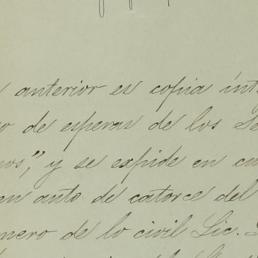 anterior es copia int
o de esperas de los Se
nos", y se expide en cu
en auto de catorce del
mero de lo civil Lic.